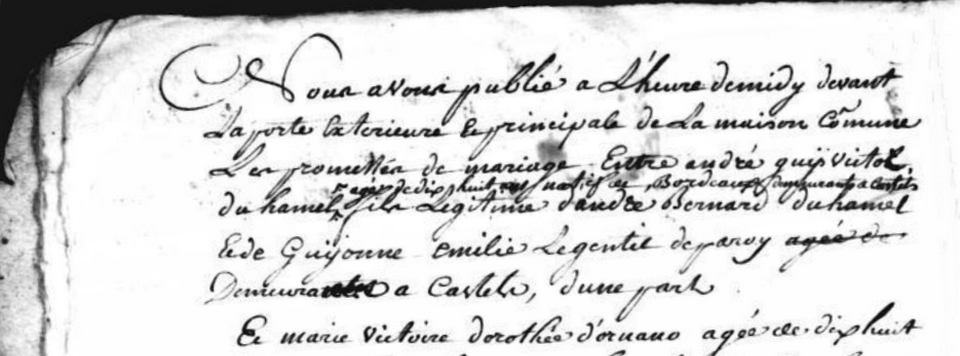 Nous avons publié a L'heure de midy devant
La porte Exterieure Et principale de La maison Cõmune
Les promesses de mariage Entre andré guÿ victor
agé de dix huit ans natif de Bordeaux demeurant a Castets
du hamel fils Legitime d'andre Bernard duhamel
Et de Guÿonne emilie Legentil deparoy agée de
Demeurant a Castets, d'une part
Et marie victoire dorothée d'ornano agée de dix huit